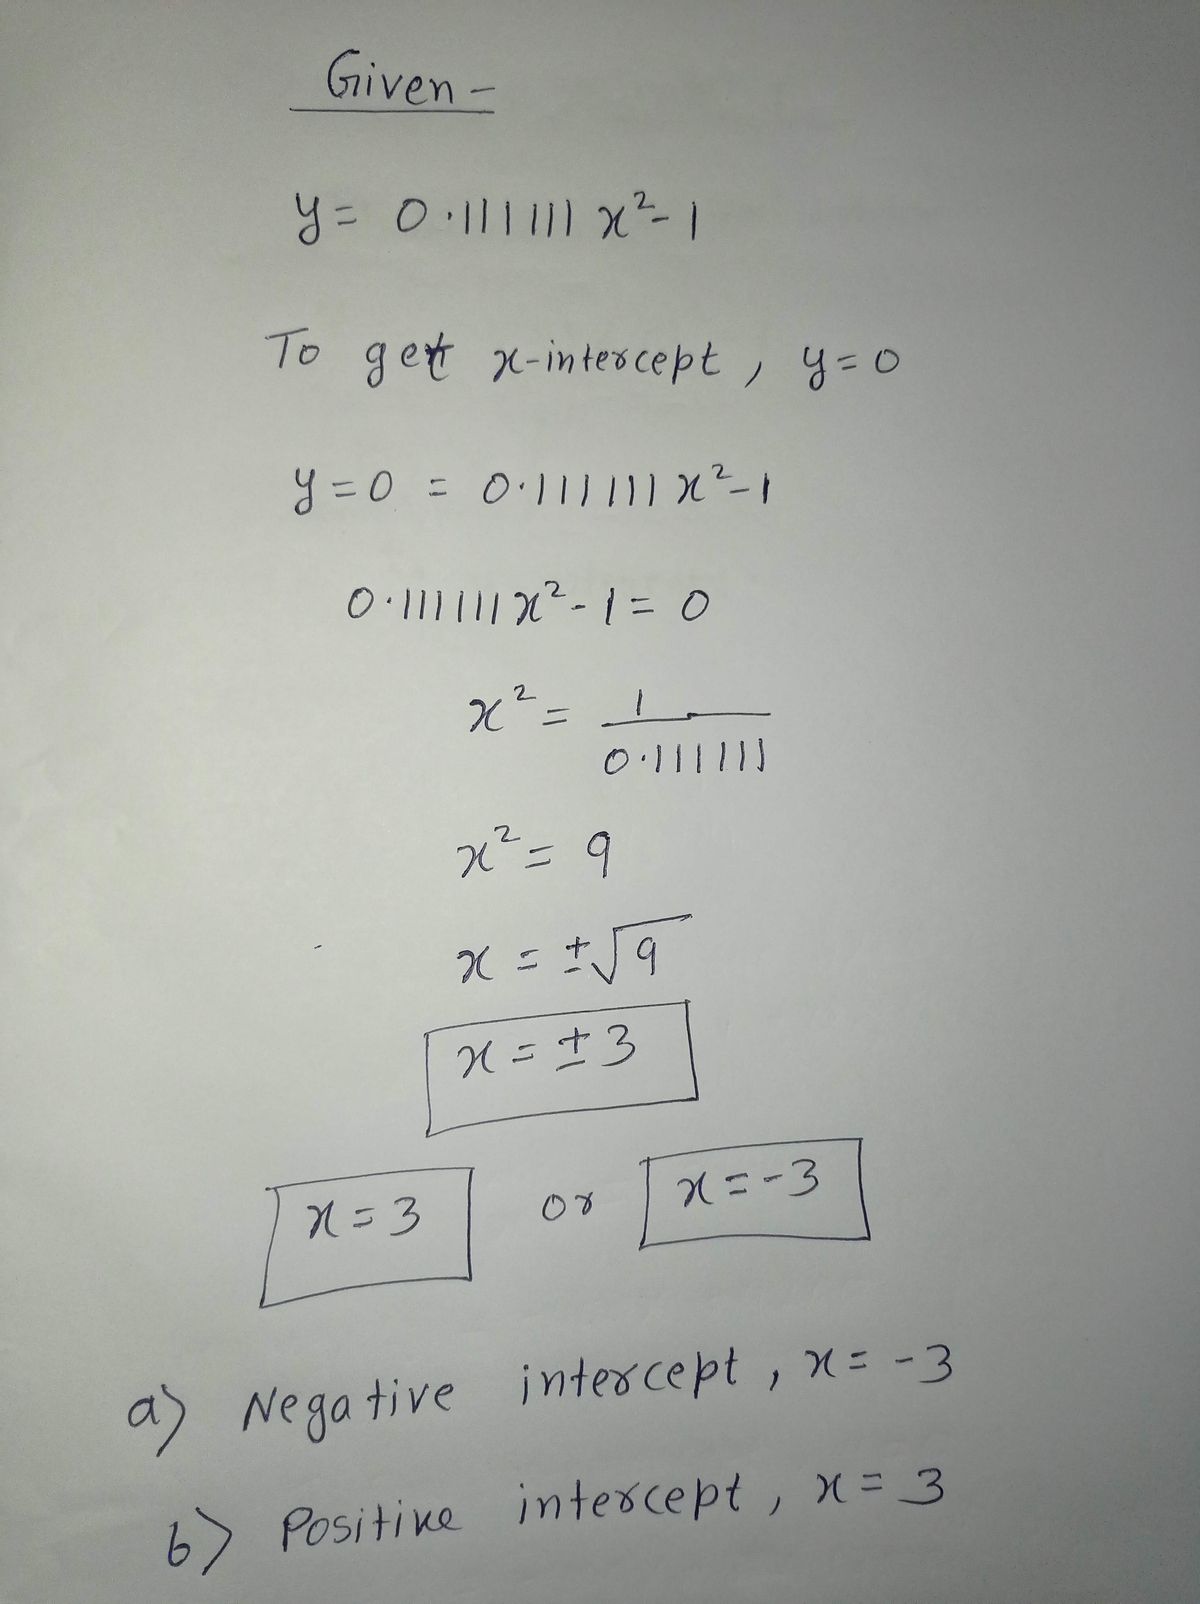 Given -
y = 0.111111 x² - 1
To get x-intercept, y=0
y=0 = 0.111111 x² - 1
0.111111 x² - 1 = 0
x² = 1/0.111111
x² = 9
x = ±√9
x = ±3
x = 3 or x = -3
a) Negative intercept, x = -3
b) Positive intercept, x = 3